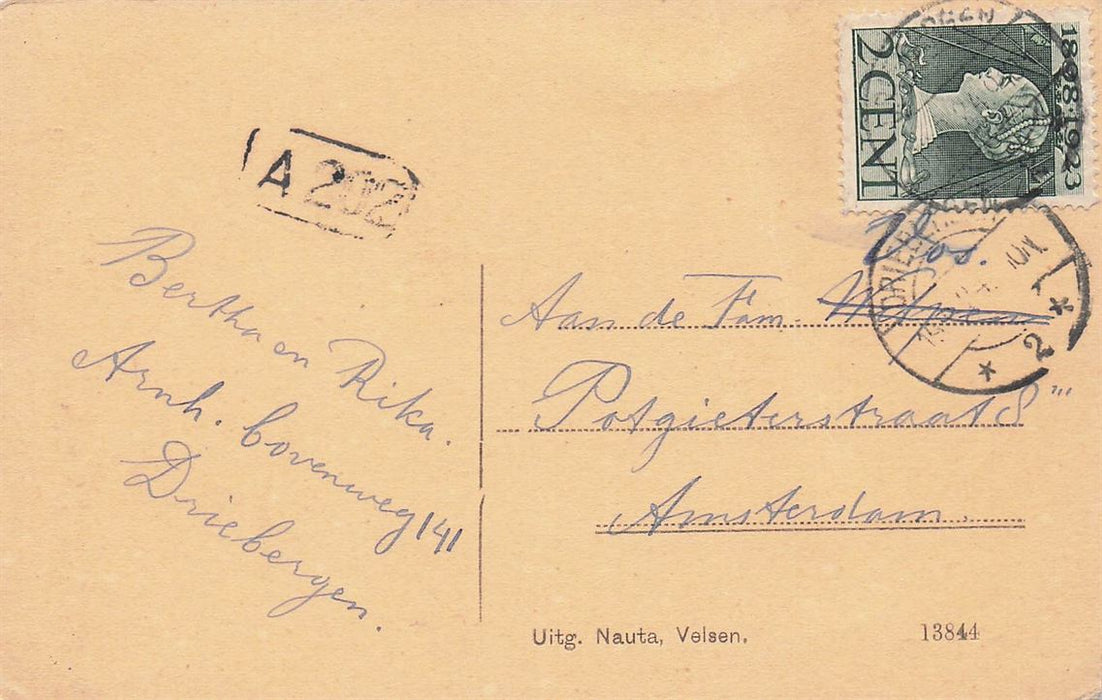 2 CENT
1898·1923
A 202
Vos.
Aan de Fam.
Potgieterstraat 8"'
Amsterdam.
Bertha en Rika.
Arnh. bovenweg 141
Driebergen.
DRIEBERGEN
2
Uitg. Nauta, Velsen.
13844